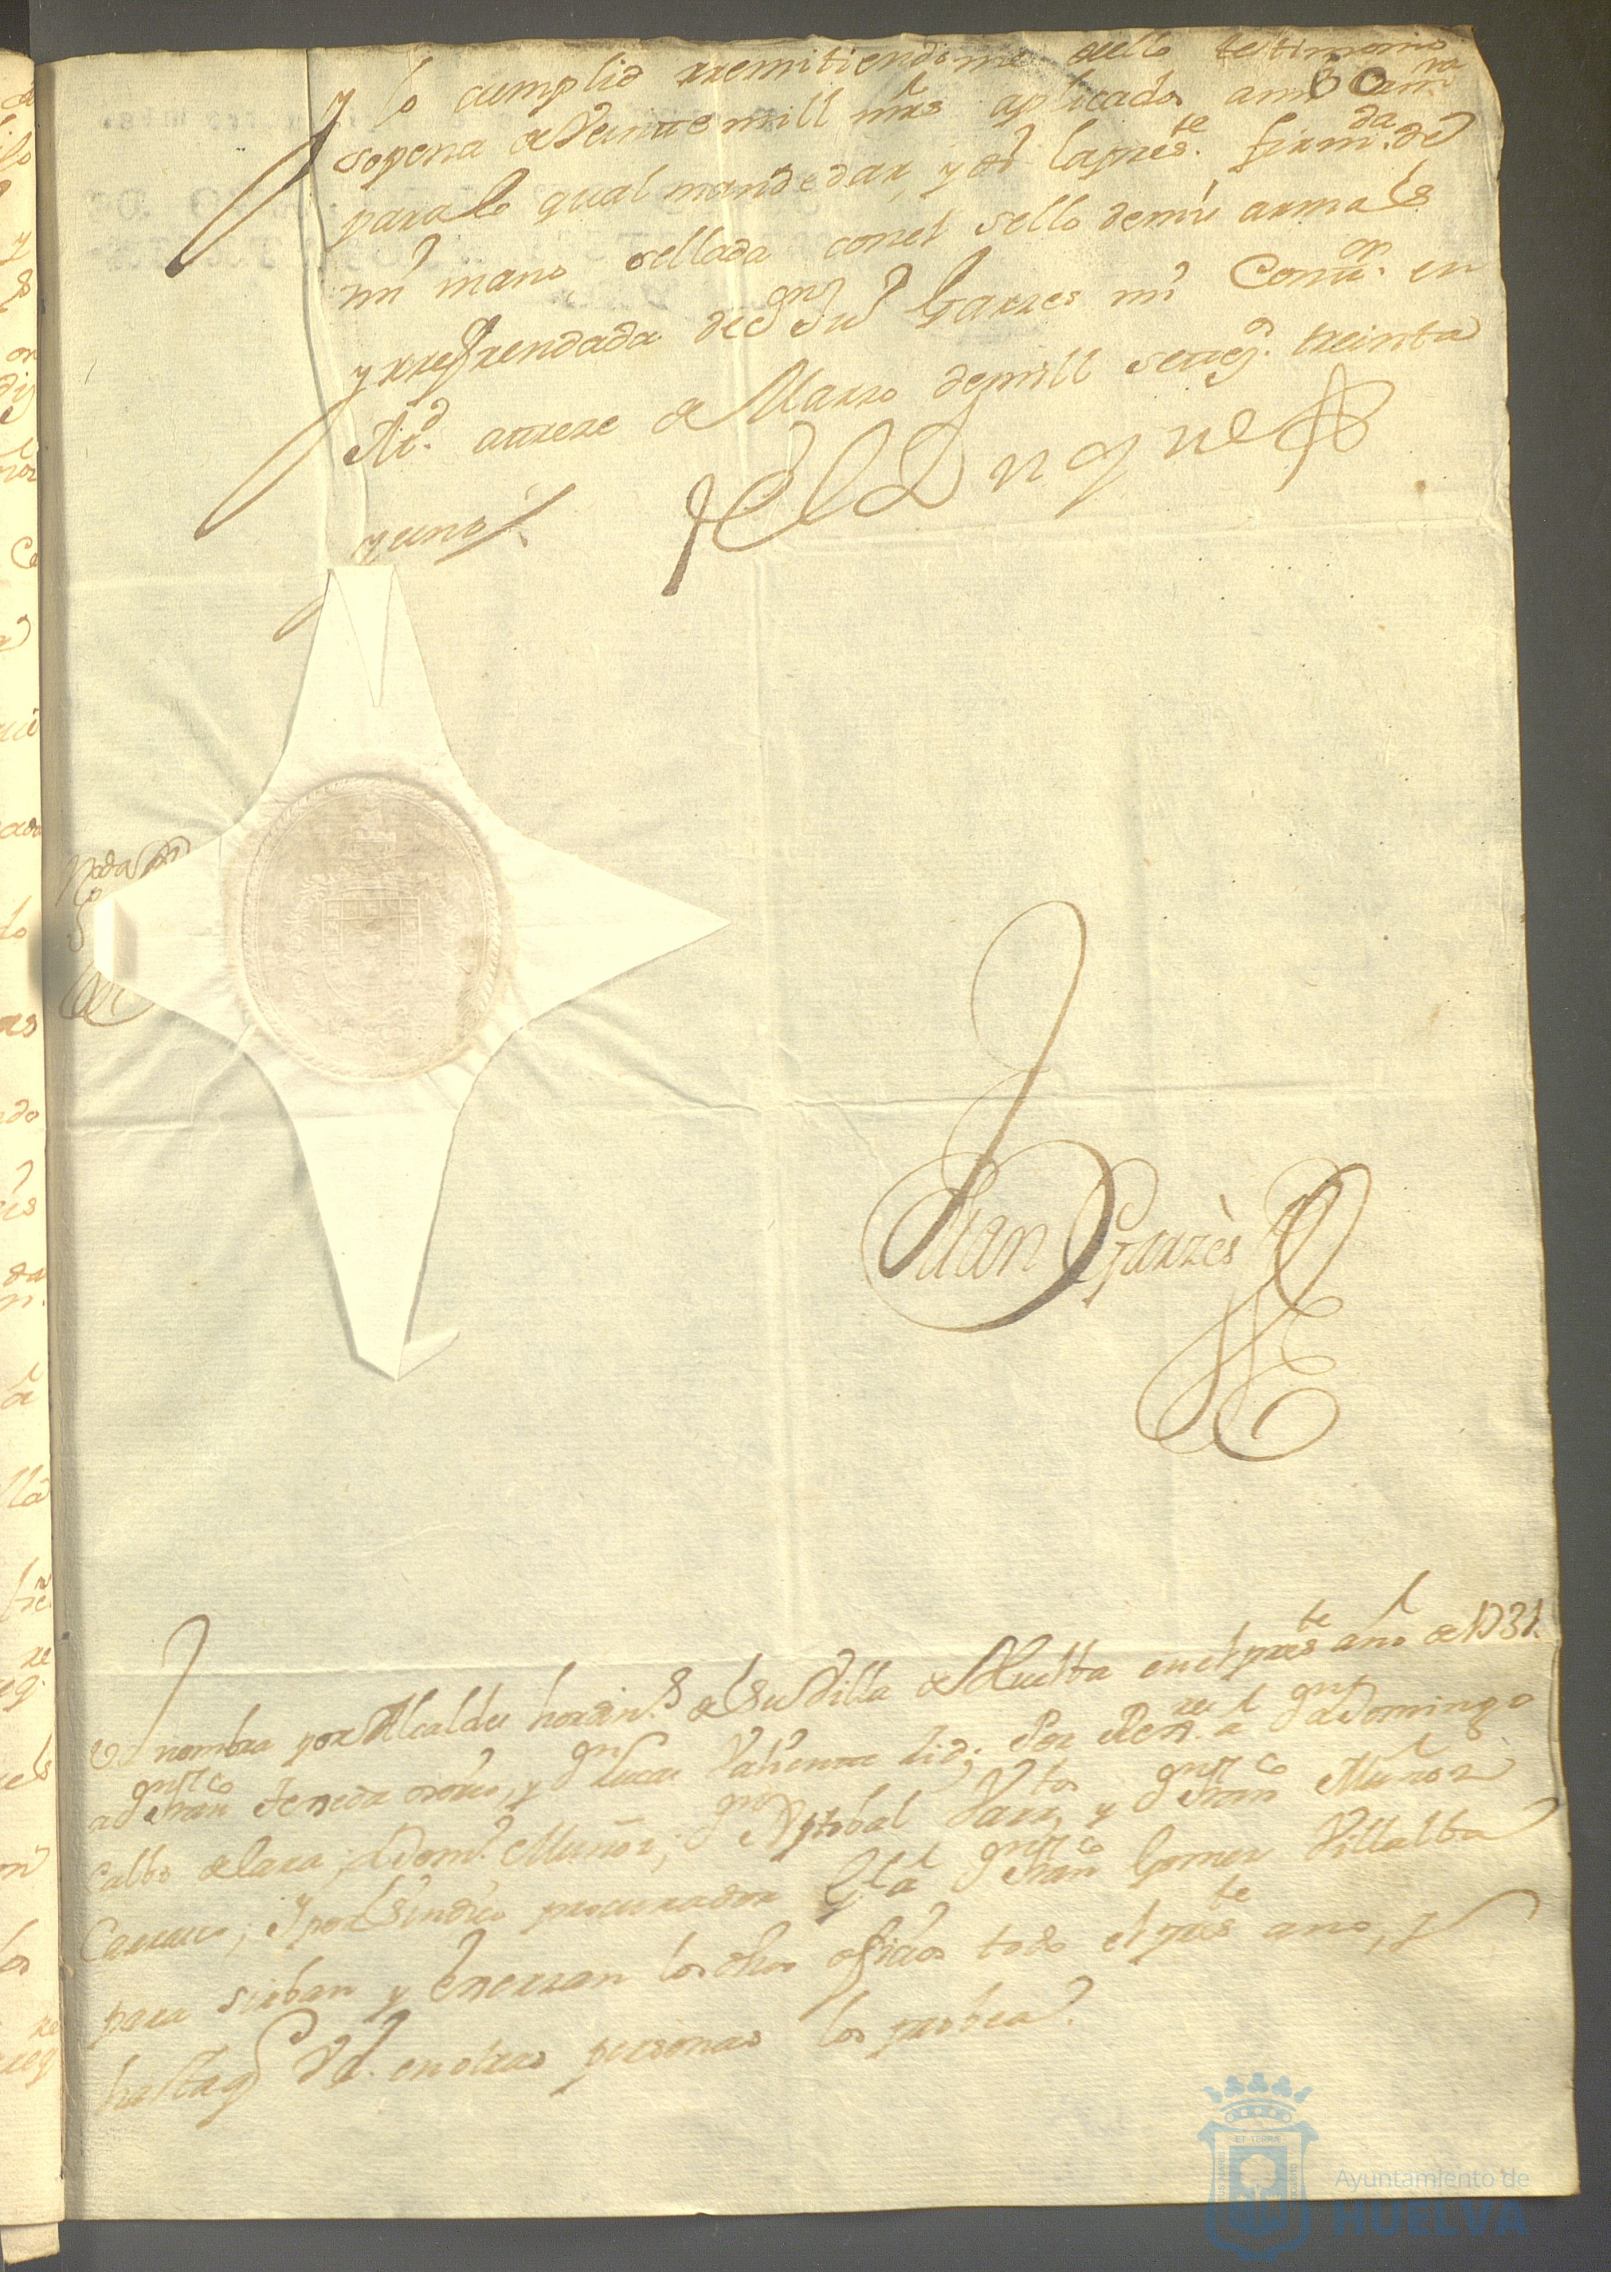 y lo cumplid rremitiendome dello testimonio
60
sopena de Veintte mill mrs aplicados ami Camra
para lo qual mandé dar, y dí la preste. firmda. de
mi mano, sellada con el sello de mis armas
y rrefrendada de Dn Juº Garzes mi Contor. en
Md. a trece de Marzo de mill setteos. treinta
y uno
El Duque
Juan Garzès
V nombra por Alcaldes hordins. de Su Villa de Huelba en el preste año de 1731.
a Dn Franco y Dn Lucas Valiente Por Rexres. a Dn Domingo
Calbo de lara; Domº. Muñoz; Dn Xptobal y Dn Franco Muñoz
Carrasco; Y por Síndico procurador Gl. a Dn Franco Gomez Villalba
para sirban y Exerzan los dhos ofizios todo el preste año, y
hasta q V. en otras personas los probea.
Ayuntamiento de
HUELVA